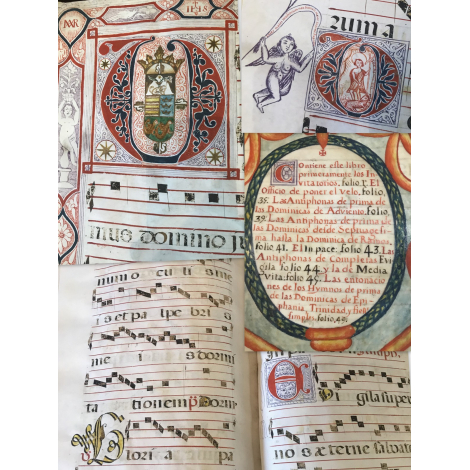 MAR
IHS
mus domino ju
zuma
Contiene este libro
primeramente los In
vitatorios, folio, 1. El
Oficio de poner el velo, folio,
35. Las Antiphonas de prima de
las Dominicas de Adviento, folio,
39. Las Antiphonas de prima de
las Dominicas desde Septuages
ma hasta la Dominica de Ramos,
folio 41. El In pace, folio 43. Las
Antiphonas de Completas E vi
gila folio 44 y la de Media
vita, folio, 45. Las entonacio
nes de los Hymnos de prima
de las Dominicas de Epi
phania, Trinidad, y fiestas
simples, folio, 49.
num oculis me
is et pal pe bri s
me i s dormi
ta tionem
Glori a patri
E
i gila super
nos æterne salvato